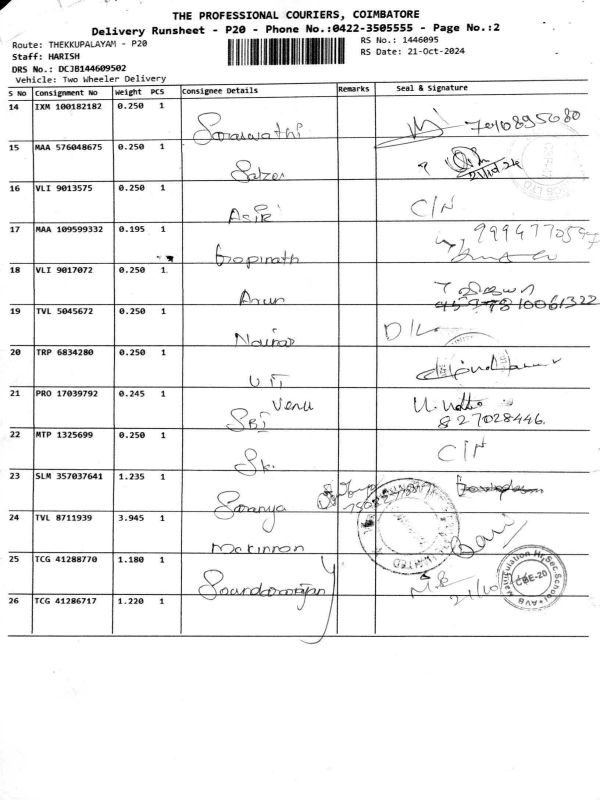 THE PROFESSIONAL COURIERS, COIMBATORE
Delivery Runsheet - P20 - Phone No.:0422-3505555 - Page No.:2
Route: THEKKUPALAYAM - P20
RS No.: 1446095
Staff: HARISH
RS Date: 21-Oct-2024
DRS No.: DCJB144609502
Vehicle: Two Wheeler Delivery
S No Consignment No Weight PCS Consignee Details Remarks Seal & Signature
14 IXM 100182182 0.250 1
Saraswathi 7010895080
15 MAA 576048675 0.250 1
Salzer 21/10/24
16 VLI 9013575 0.250 1
Asik C/N
17 MAA 109599332 0.195 1
Gopinath
18 VLI 9017072 0.250 1
Arun 10061322
19 TVL 5045672 0.250 1
D/L
20 TRP 6834280 0.250 1
21 PRO 17039792 0.245 1
SBI Venu
827028446.
22 MTP 1325699 0.250 1
Sk. C/N
23 SLM 357037641 1.235 1
Saranya
24 TVL 8711939 3.945 1
Mckinnon
25 TCG 41288770 1.180 1
Soundarrajan
21/10
CBE-20
26 TCG 41286717 1.220 1